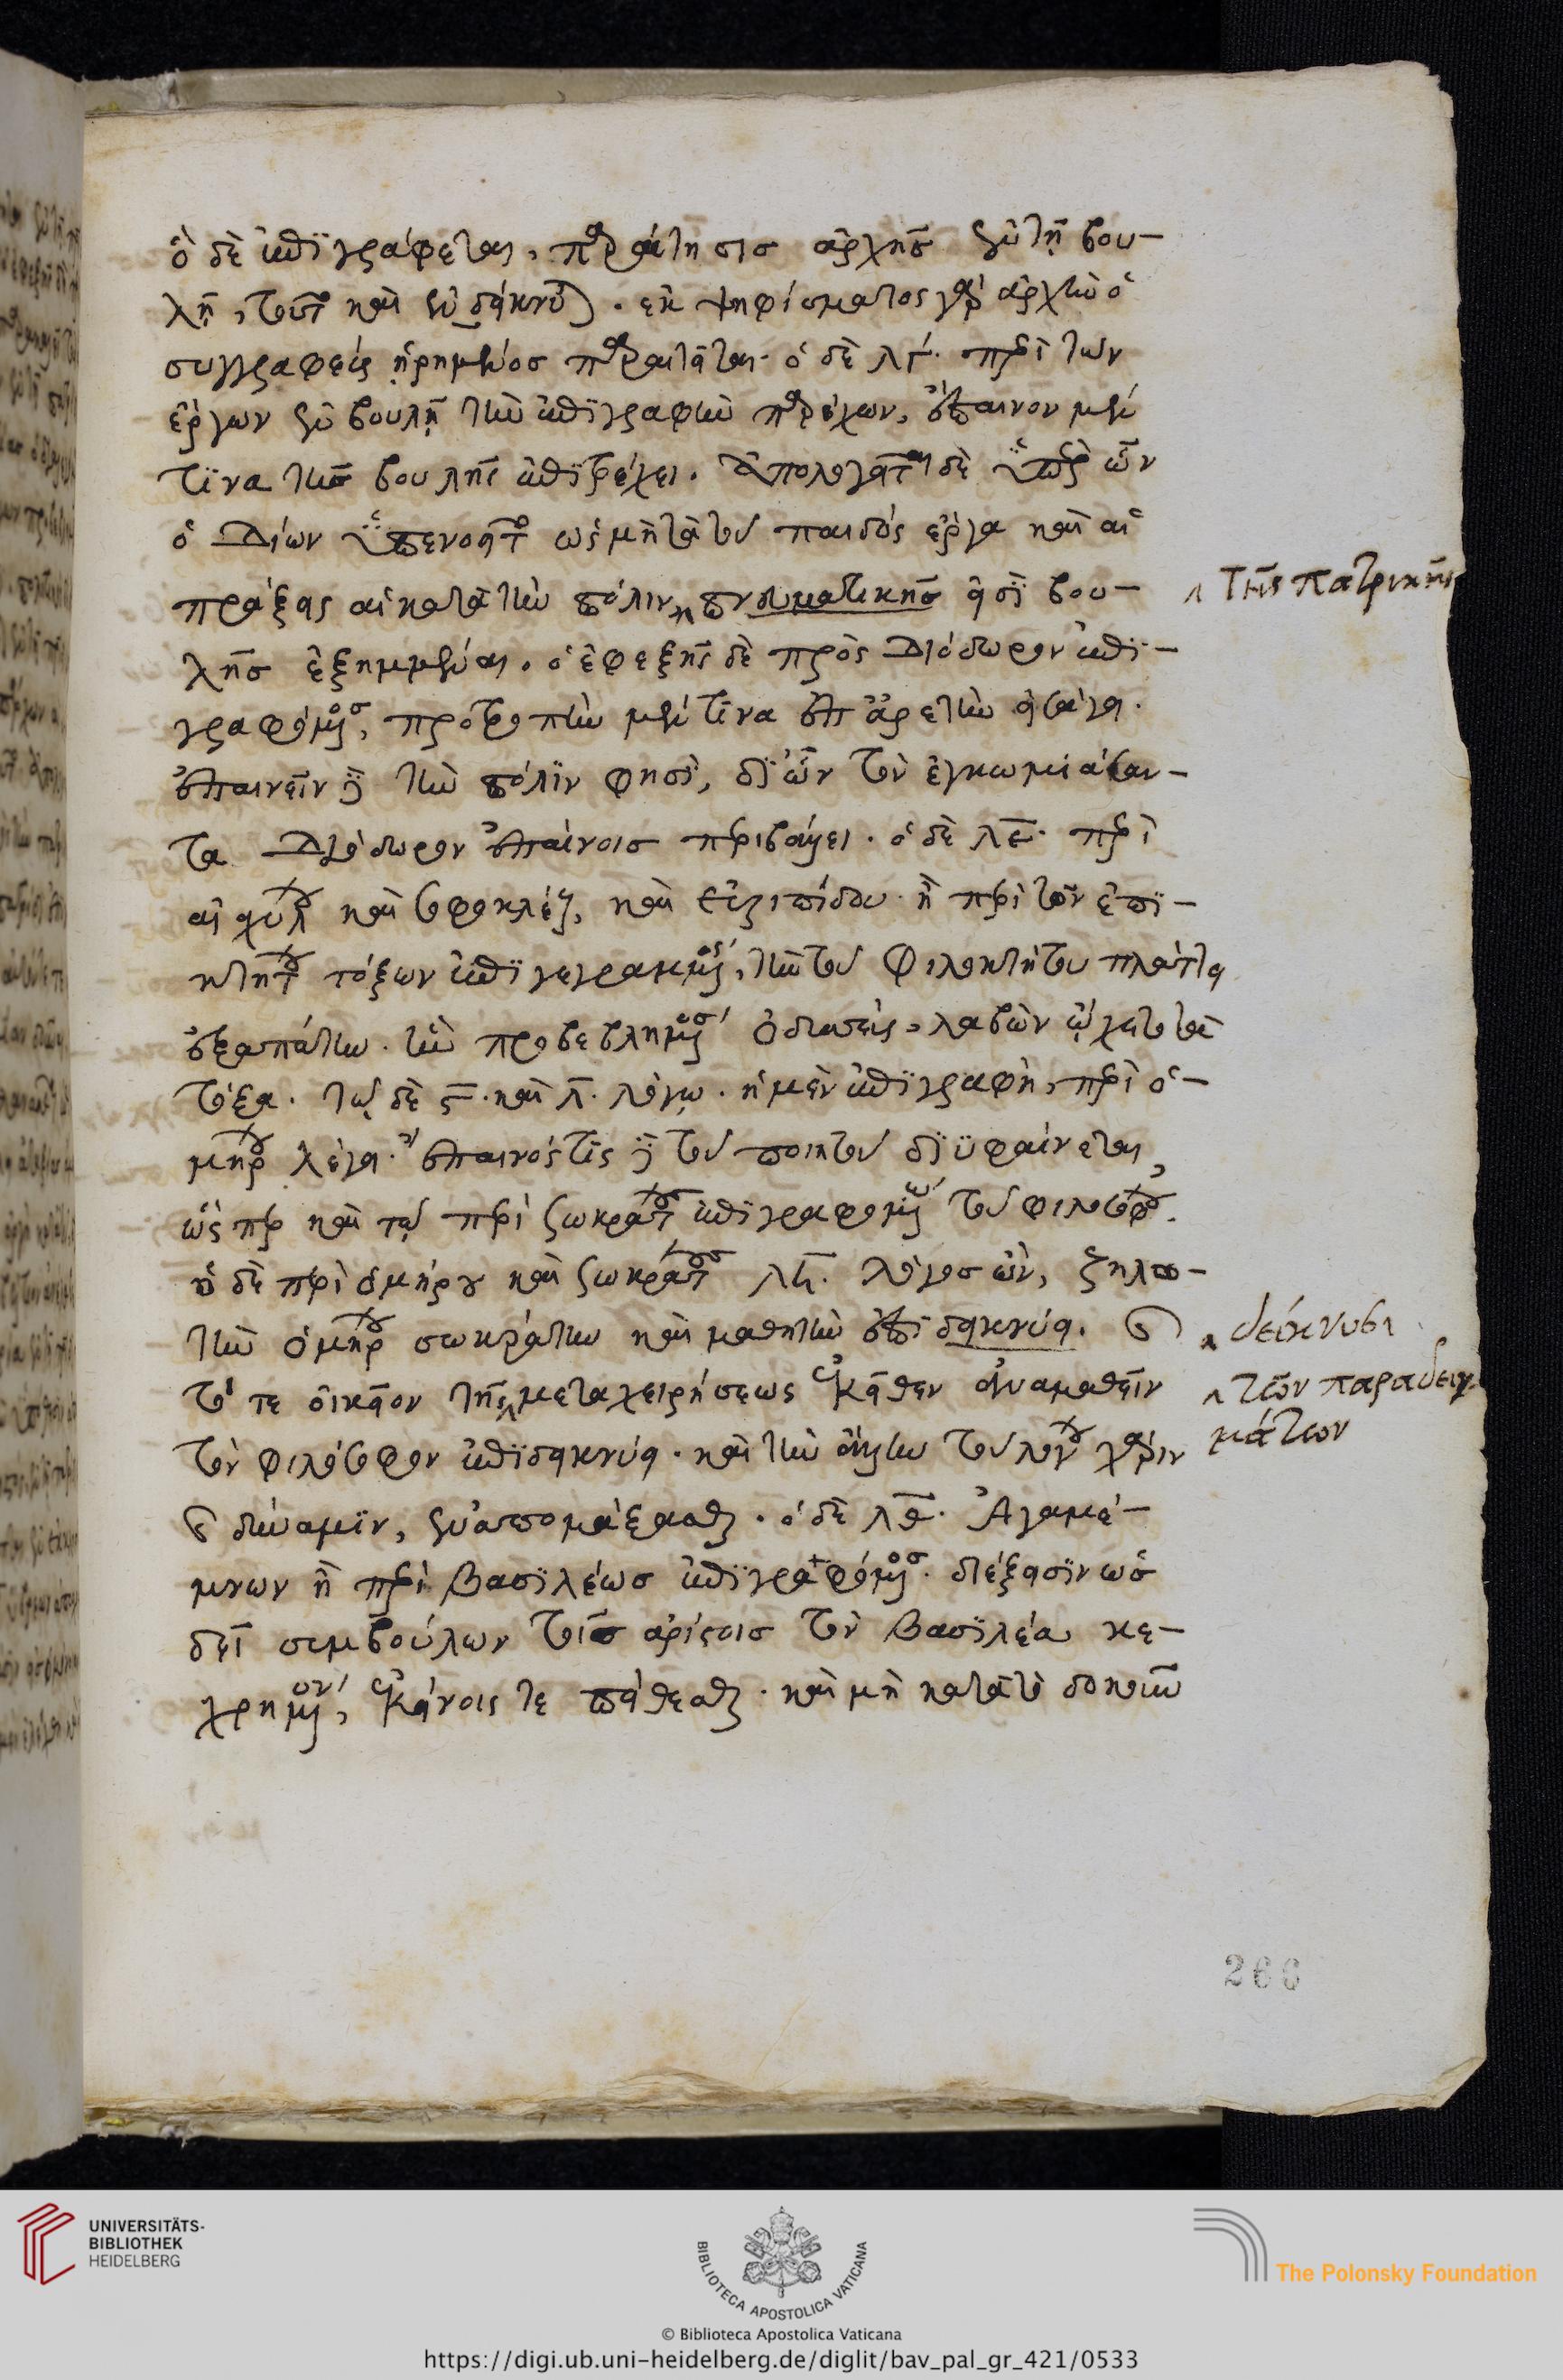 ὁ δὲ ἐπιγράφεται, παραίτησις ἀρχῆς ἐν τῇ βου-
λῇ, τοῦτο καὶ ἐνδείκνυται. ἐκ ψηφίσματος γὰρ ἀρχὴν ὁ
συγγραφεὺς ᾑρημένος παραιτεῖται. ὁ δὲ λγ. περὶ τῶν
ἔργων ἐν βουλῇ τὴν ἐπιγραφὴν παρέχων, ἔπαινον μέν
τινα τῆς βουλῆς ἐπιτρέχει. ἀπολογεῖται δὲ ὑπὲρ ὧν
ὁ Δίων ὑπενοεῖτο ὡς μὴ τὰ τοῦ παιδὸς ἔργα καὶ αἱ
πράξεις αἱ κατὰ τὴν πόλιν, πνευματικῆς εἰσὶ βου-
λῆς ἐξημμέναι. ὁ ἐφεξῆς δὲ πρὸς Διόδωρον ἐπι-
γραφόμενος, προτροπὴν μέν τινα ἐπ' ἀρετὴν εἰσάγει.
ἐπαινεῖν δὲ τὴν πόλιν φησὶ, δι' ὧν τὸν ἐγκωμιάσαν-
τα Διόδωρον ἐπαίνοις περιβάλλει. ὁ δὲ λε. περὶ
αἰσχύλου καὶ σοφοκλέους, καὶ εὐριπίδου ἢ περὶ τῶν ἐπι-
κτήτου τόξων ἐπιγεγραμμένος, τὴν τοῦ Φιλοκτήτου πλάττει
ἐξαπάτην. ἣν προβεβλημένος ὀδυσσεὺς, λαβὼν ᾤχετο τὰ
τόξα. τῷ δὲ ϛ. καὶ λ. λόγῳ. ἡ μὲν ἐπιγραφὴ, περὶ ὁ-
μήρου λέγει. ἔπαινος τις δὲ τοῦ ποιητοῦ διυφαίνεται,
ὥςπερ καὶ τῷ περὶ σωκράτους ἐπιγραφομένῳ τοῦ φιλοσόφου.
ὁ δὲ περὶ ὁμήρου καὶ σωκράτους λη. λόγος ὢν, ζηλω-
τὴν ὁμήρου σωκράτην καὶ μαθητὴν ἐπιδεικνύει. καὶ
τό τε οἰκεῖον τῆς μεταχειρήσεως κἀκεῖθεν ἀναμαθεῖν
τὸν φιλόσοφον ἐπιδεικνύει. καὶ τὴν ἄλλην τοῦ λόγου χάριν
καὶ δύναμιν, ἐναπομάξασθαι. ὁ δὲ λθ. Ἀγαμέ-
μνων ἢ περὶ βασιλέως ἐπιγραφόμενος. διέξεισιν ὡς
δεῖ συμβούλων τοῖς ἀρίστοις τὸν βασιλέα κε-
χρημένον, κἀκείνοις τε πείθεσθαι. καὶ μὴ κατὰ τὸ δοκοῦν
‸ τῆς πατρικῆς
‸ δείκνυσι
‸ τῶν παραδειγ-
μάτων
266
UNIVERSITÄTS-
BIBLIOTHEK
HEIDELBERG
BIBLIOTECA APOSTOLICA VATICANA
The Polonsky Foundation
© Biblioteca Apostolica Vaticana
https://digi.ub.uni-heidelberg.de/diglit/bav_pal_gr_421/0533